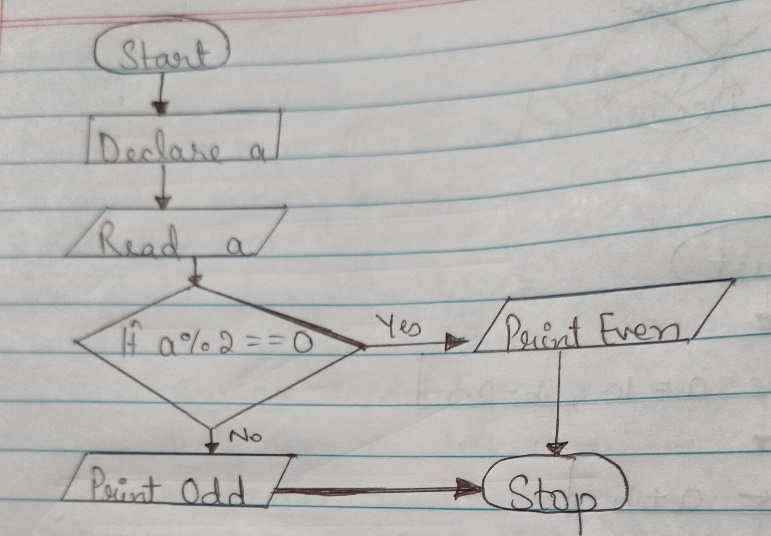 Start
Declare a
Read a
If a%2==0
Yes
Print Even
No
Print Odd
Stop